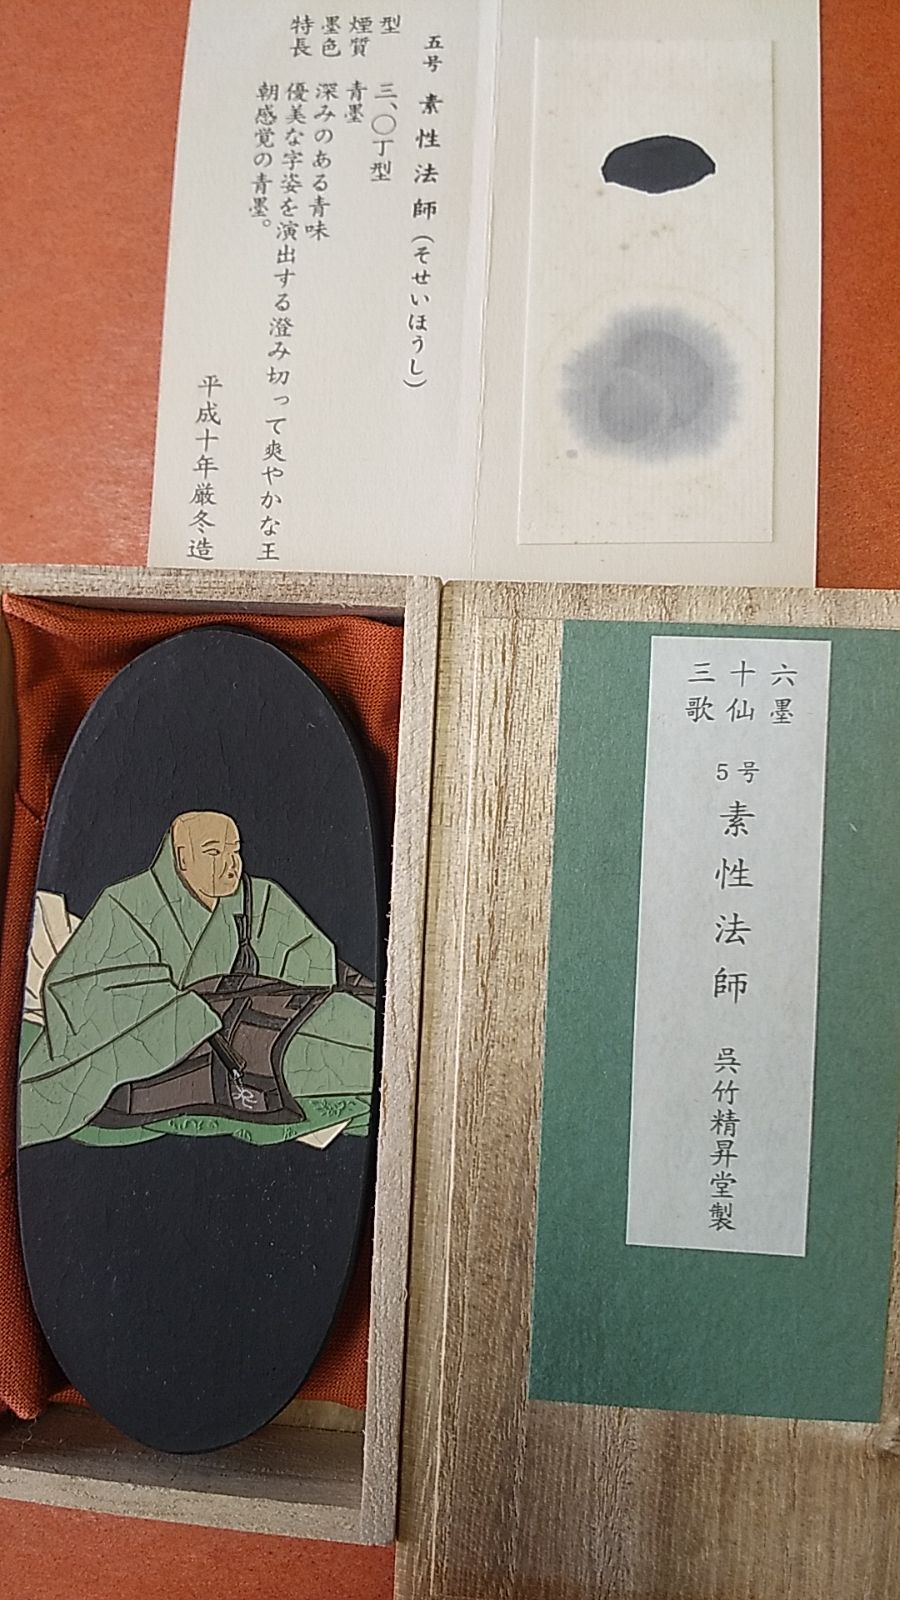 五号 素性法師(そせいほうし)
型 三、〇丁型
煙質 青墨
墨色 深みのある青味
特長 優美な字姿を演出する澄み切って爽やかな王
朝感覚の青墨。
平成十年厳冬造
六墨
十仙
三歌
5号 素性法師 呉竹精昇堂製